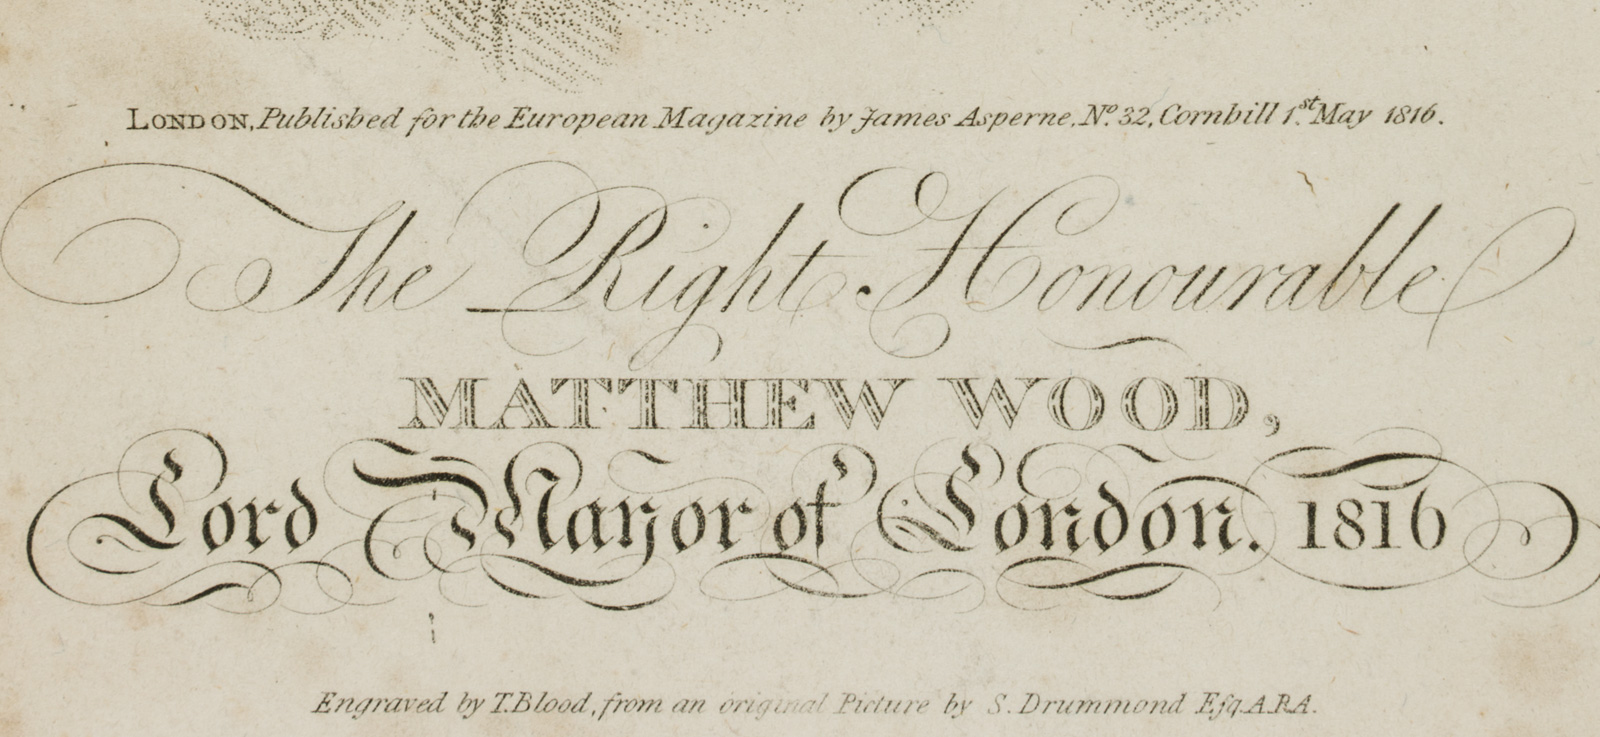 LONDON, Published for the European Magazine by James Asperne, Nº. 32, Cornhill 1.st May 1816.
The Right Honourable
MATTHEW WOOD,
Lord Mayor of London. 1816
Engraved by T. Blood, from an original Picture by S. Drummond Eſq. A.R.A.